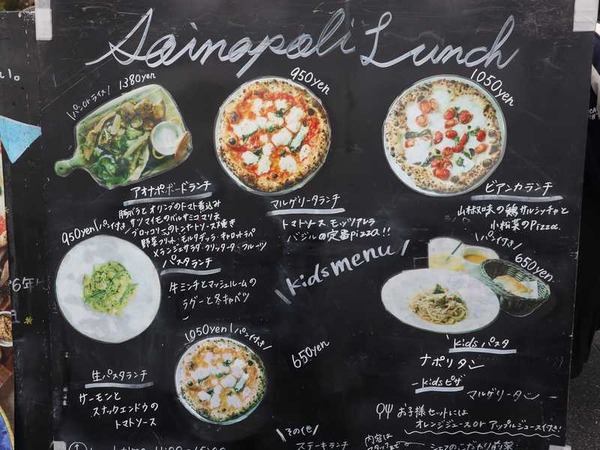 Sainapoli Lunch
パンorライス！ 1380yen
アオナポボードランチ
豚バラとオリーブのトマト煮込み
サツマイモのバルサミコマリネ
野菜フリット・モルタデッラ・キャロットラペ
メランジェサラダ・クリッタータ・フルーツ
950yen
マルゲリータランチ
トマトソース モッツァレラ
バジルの定番pizza!!
1050yen
ビアンカランチ
山椒風味の鶏サルシッチャと
小松菜のPizza
950yen パン付き
パスタランチ
牛ミンチとマッシュルームの
ラグーと冬キャベツ
kids menu
パン付き
650yen
kids パスタ
ナポリタン
kids ピザ
マルゲリータ
1050yen パン付き
650yen
生パスタランチ
サーモンと
スナックエンドウの
トマトソース
お子様セットには
オレンジジュース or アップルジュース付き!
その他
ステーキランチ
内容は